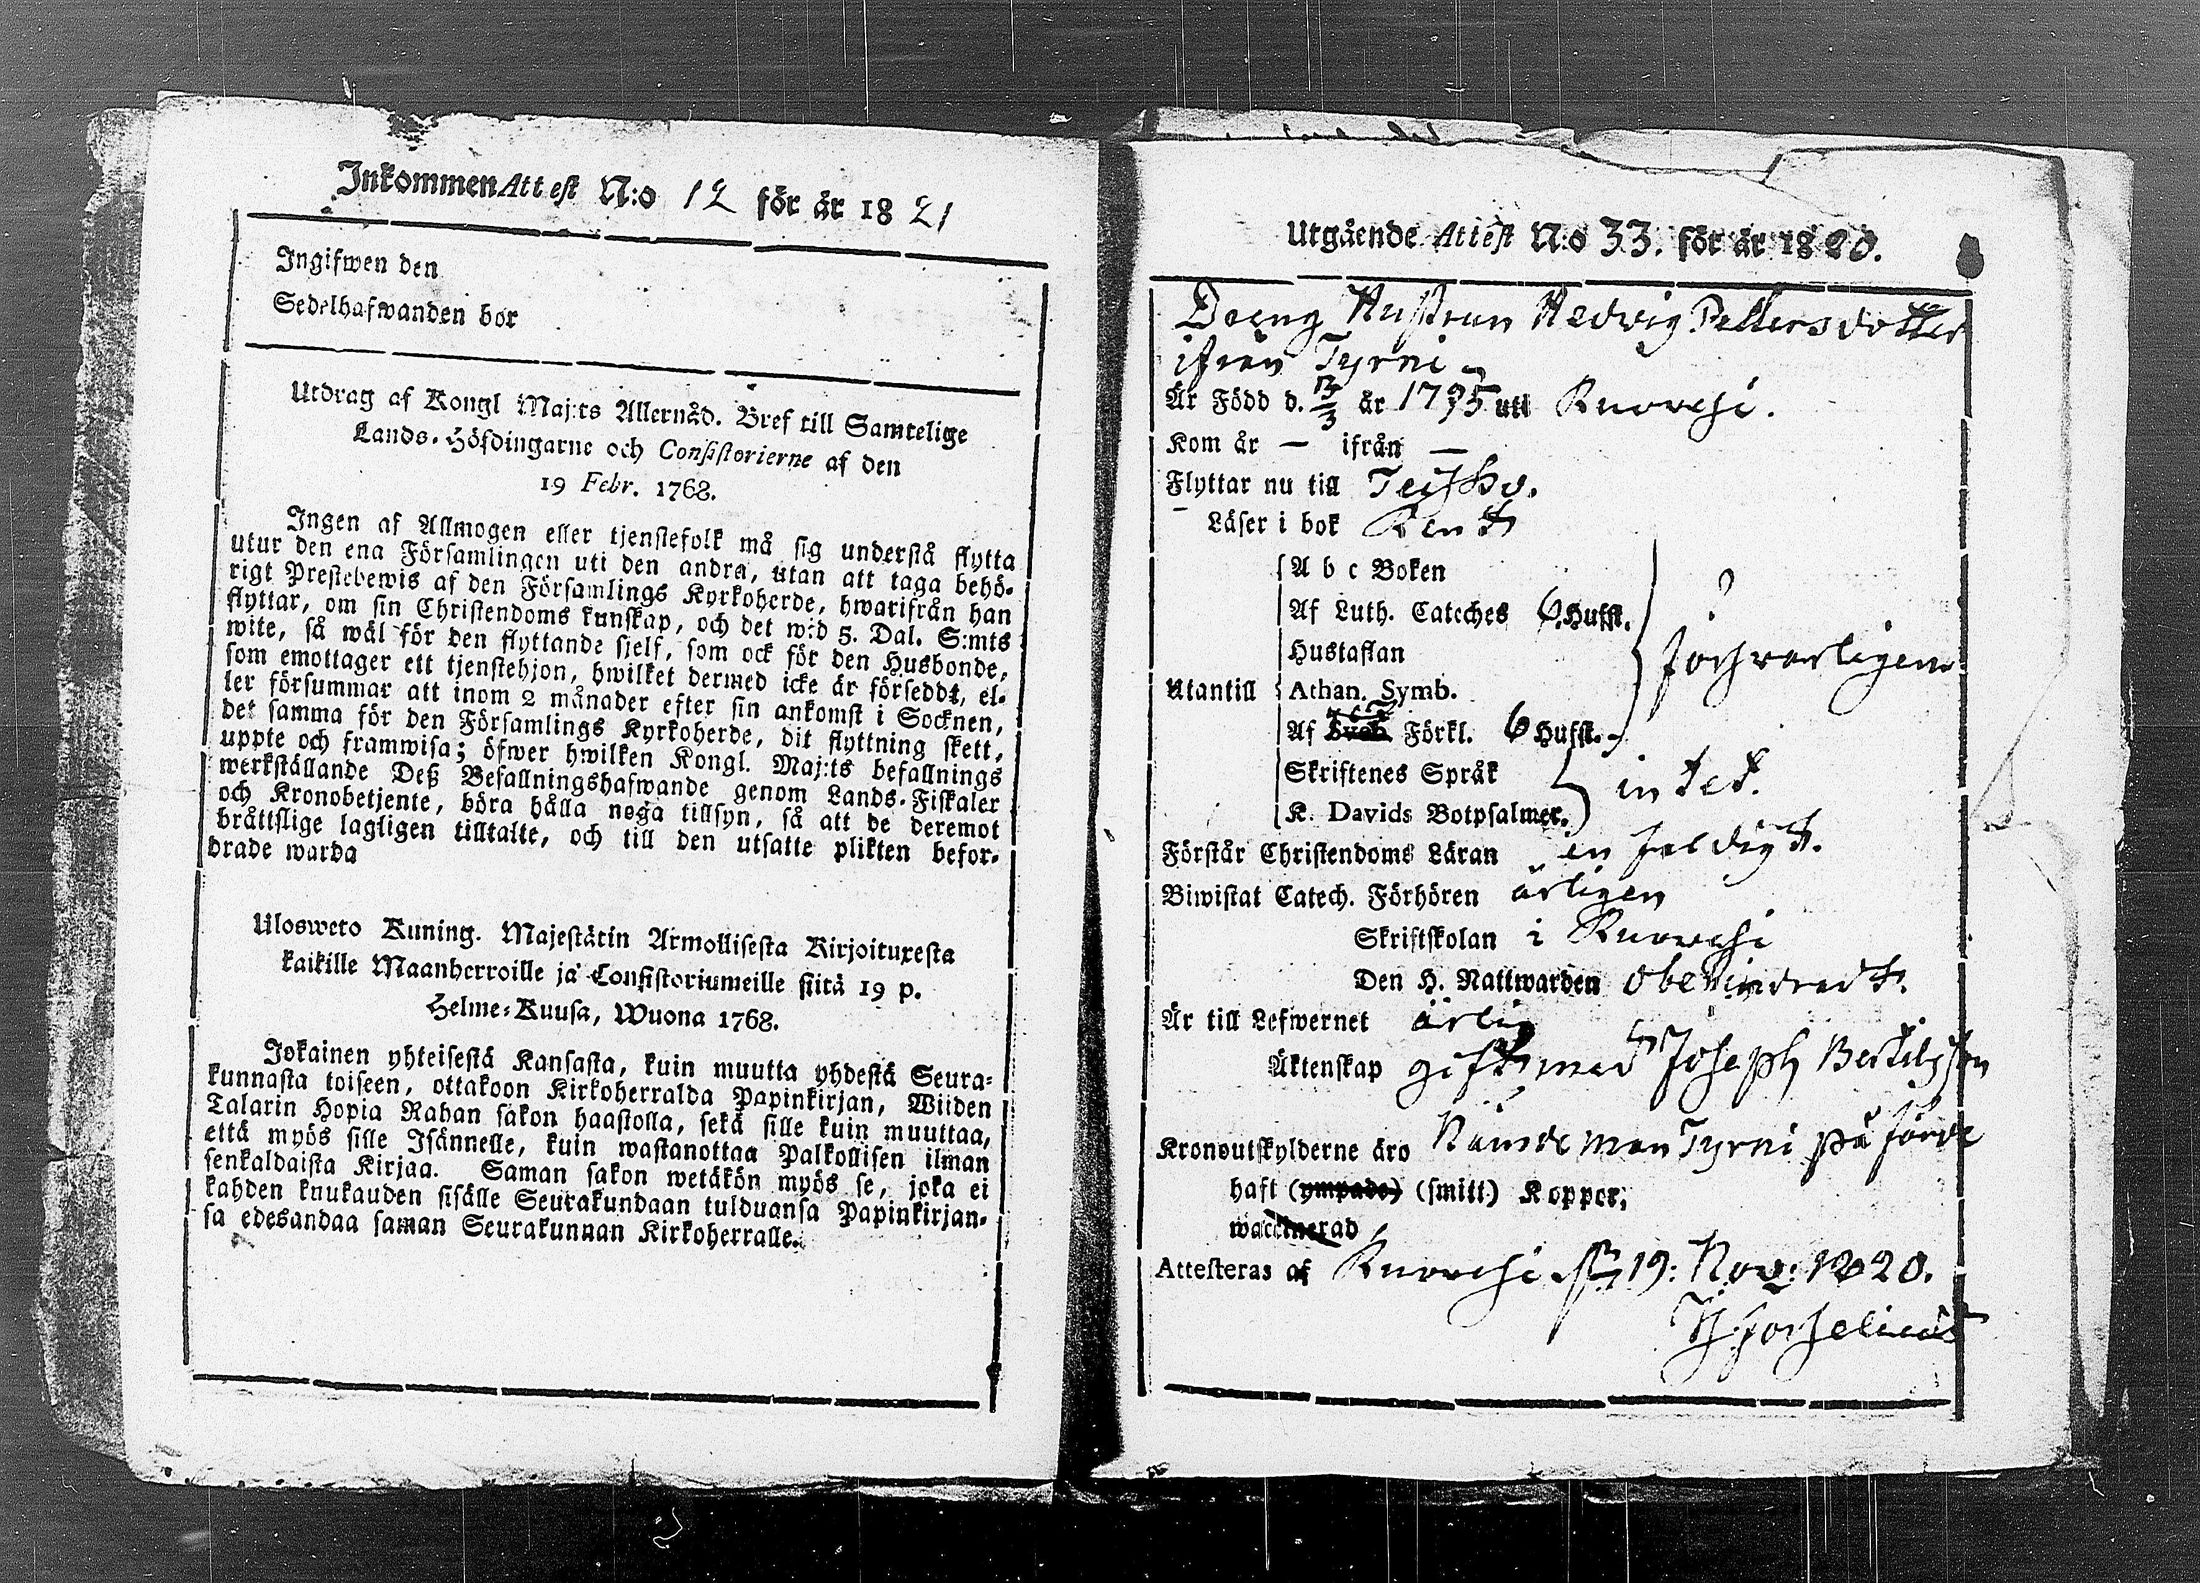 Inkommen Attest N:o 12 för år 1821
Ingifwen den
Sedelhafwanden bor
Utdrag af Kongl Maj:ts Allernåd. Bref till Samtelige
Lands-Höfdingarne och Consistorierne af den
19 Febr. 1768.
Ingen af Allmogen eller tjenstefolk må sig understå flytta
utur den ena Församlingen uti den andra, utan att taga behö-
rigt Prestebewis af den Församlings Kyrkoherde, hwarifrån han
flyttar, om sin Christendoms kunskap, och det wid 5. Dal. S:mts
wite, så wäl för den flyttande sjelf, som ock för den Husbonde,
som emottager ett tjenstehjon, hwilket dermed icke är förseddt, el-
ler försummar att inom 2 månader efter sin ankomst i Socknen,
det samma för den Församlings Kyrkoherde, dit flyttning skett,
uppte och framwisa; öfwer hwilken Kongl. Maj:ts befallnings
werkställande Deß Befallningshafwande genom Lands-Fiskaler
och Kronobetjente, böra hålla noga tillsyn, så att de deremot
bråttslige lagligen tilltalte, och till den utsatte plikten befor-
drade warda
Ulosweto Kuning. Majestätin Armollisesta Kirjoituxesta
kaikille Maanherroille ja Consistoriumeille siitä 19 p.
Helme-Kuusa, Wuona 1768.
Jokainen yhteisestä Kansasta, kuin muutta yhdestä Seura-
kunnasta toiseen, ottakoon Kirkoherralda Papinkirjan, Wiiden
Talarin Hopia Rahan sakon haastolla, sekä sille kuin muuttaa,
että myös sille Isännelle, kuin wastanottaa Palkollisen ilman
senkaldaista Kirjaa. Saman sakon wetäkön myös se, joka ei
kahden knukauden sisälle Seurakundaan tulduansa Papinkirjan-
sa edesandaa saman Seurakunnan Kirkoherralle.
Utgående Attest N:o 33. för år 1820.
Dreng Hustrun Hedvig Pettersdotter
ifrån Tyrni
Är Född d. 13/3 år 1795 uti Ruovesi.
Kom år — ifrån —
Flyttar nu till Teisko.
Läser i bok Rent
A b c Boken
Af Luth. Cateches 6 Hufst.
?
Hustaflan
försvarligen
Utantill Athan. Symb.
Af Sveb. Förkl. 6 Hufst.
Skriftenes Språk
intet.
K. Davids Botpsalmer.
Förstår Christendoms Läran enfaldigt.
Biwistat Catech. Förhören årligen
Skriftskolan i Ruovesi
Den H. Nattwarden obehindradt.
Är till Lefwernet ärlig
Äktenskap gift med Joseph Bertilsson
Kronoutskylderne äro Nämdeman Tyrni på förde
haft (ympade) (smitt) Koppor;
waccinerad
Attesteras af Ruovesi d. 19: Nov: 1820.
H. Forselius